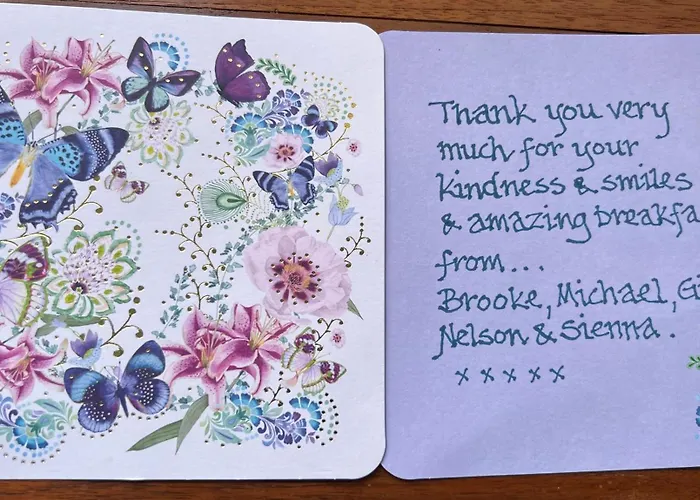 Thank you very
much for your
kindness & smiles
& amazing breakfa
from...
Brooke, Michael, G
Nelson & Sienna.
x x x x x